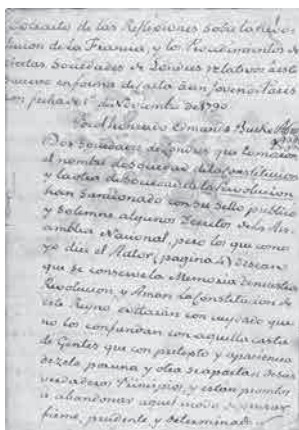 Extracto de las Reflexiones sobre la revo-
lucion de la Francia, y los Procedimientos de
ciertas Sociedades de Londres relativos a este
suceso en forma de carta a un joven de Paris
con fecha de 1º de Noviembre de 1790.
Por el honrado Edmundo Burke
Dos Sociedades de Londres que tomaron
el nombre de sociedad de la Constitucion
y la otra de Sociedad de la Revolucion
han sancionado con su sello publico
y solemne algunos Decretos de la As-
amblea Nacional, pero los que como
yo dice el Autor, (pagina 4) desean
que se conserve la Memoria de nuestra
Revolucion, y Aman la Constitucion de
este Reyno evitarán con cuydado que
no los confundan con aquella casta
de Gentes que con pretexto y apariencia
de zelo por una y otra se apartan de sus
verdaderos Principios, y estan promptos
a abandonar aquel modo de pensar
firme, prudente, y determinado